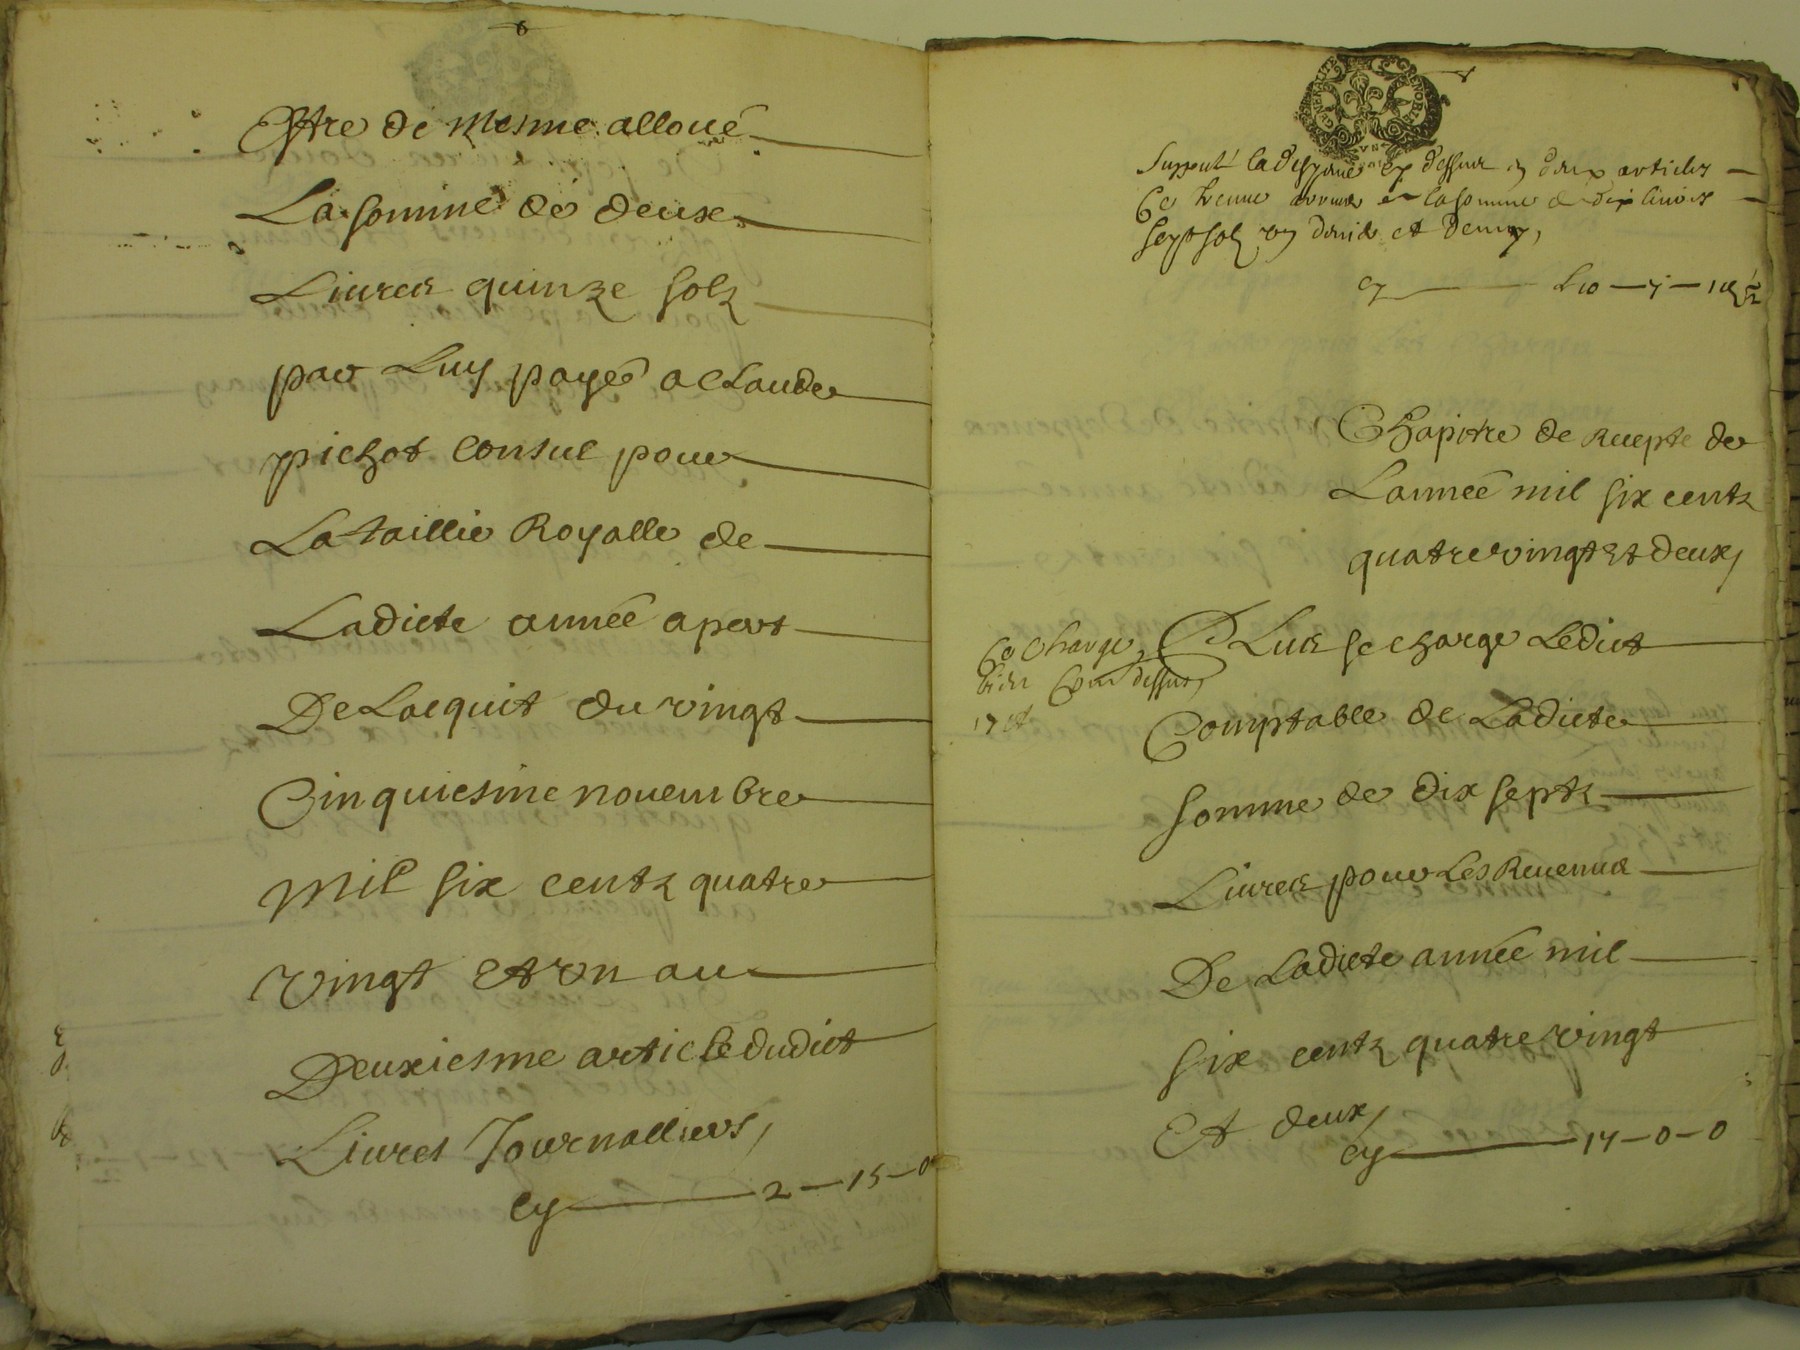 Estre de mesme alloué
La somme de deux
Liures quinze solz
par Luy payé a Claude
pichot Consul pour
La taillie Royalle de
Ladicte année apert
De Lacquit du vingt
Cinquiesme nouembre
mil six centz quatre
vingt et un au
Deuxiesme article dudict
Liures Journalliers,
cy 2-15-0
GENERALITE GRENOBLE
VN
Supputé la despance cy dessus en deux articles
Ce treuue monter la somme de dix liures
sept solz un denier et demy,
cy L10-7-1d 1/2
Chapitre de Recepte de
Lannée mil six centz
quatre vingt et deux,
Ce charge
bien Comme dessus,
17 lt
Plus se charge Ledict
Comptable de Ladicte
somme de dix septz
Liures pour Les Reuenus
De Ladicte année mil
six centz quatre vingt
Et deux,
cy 17-0-0